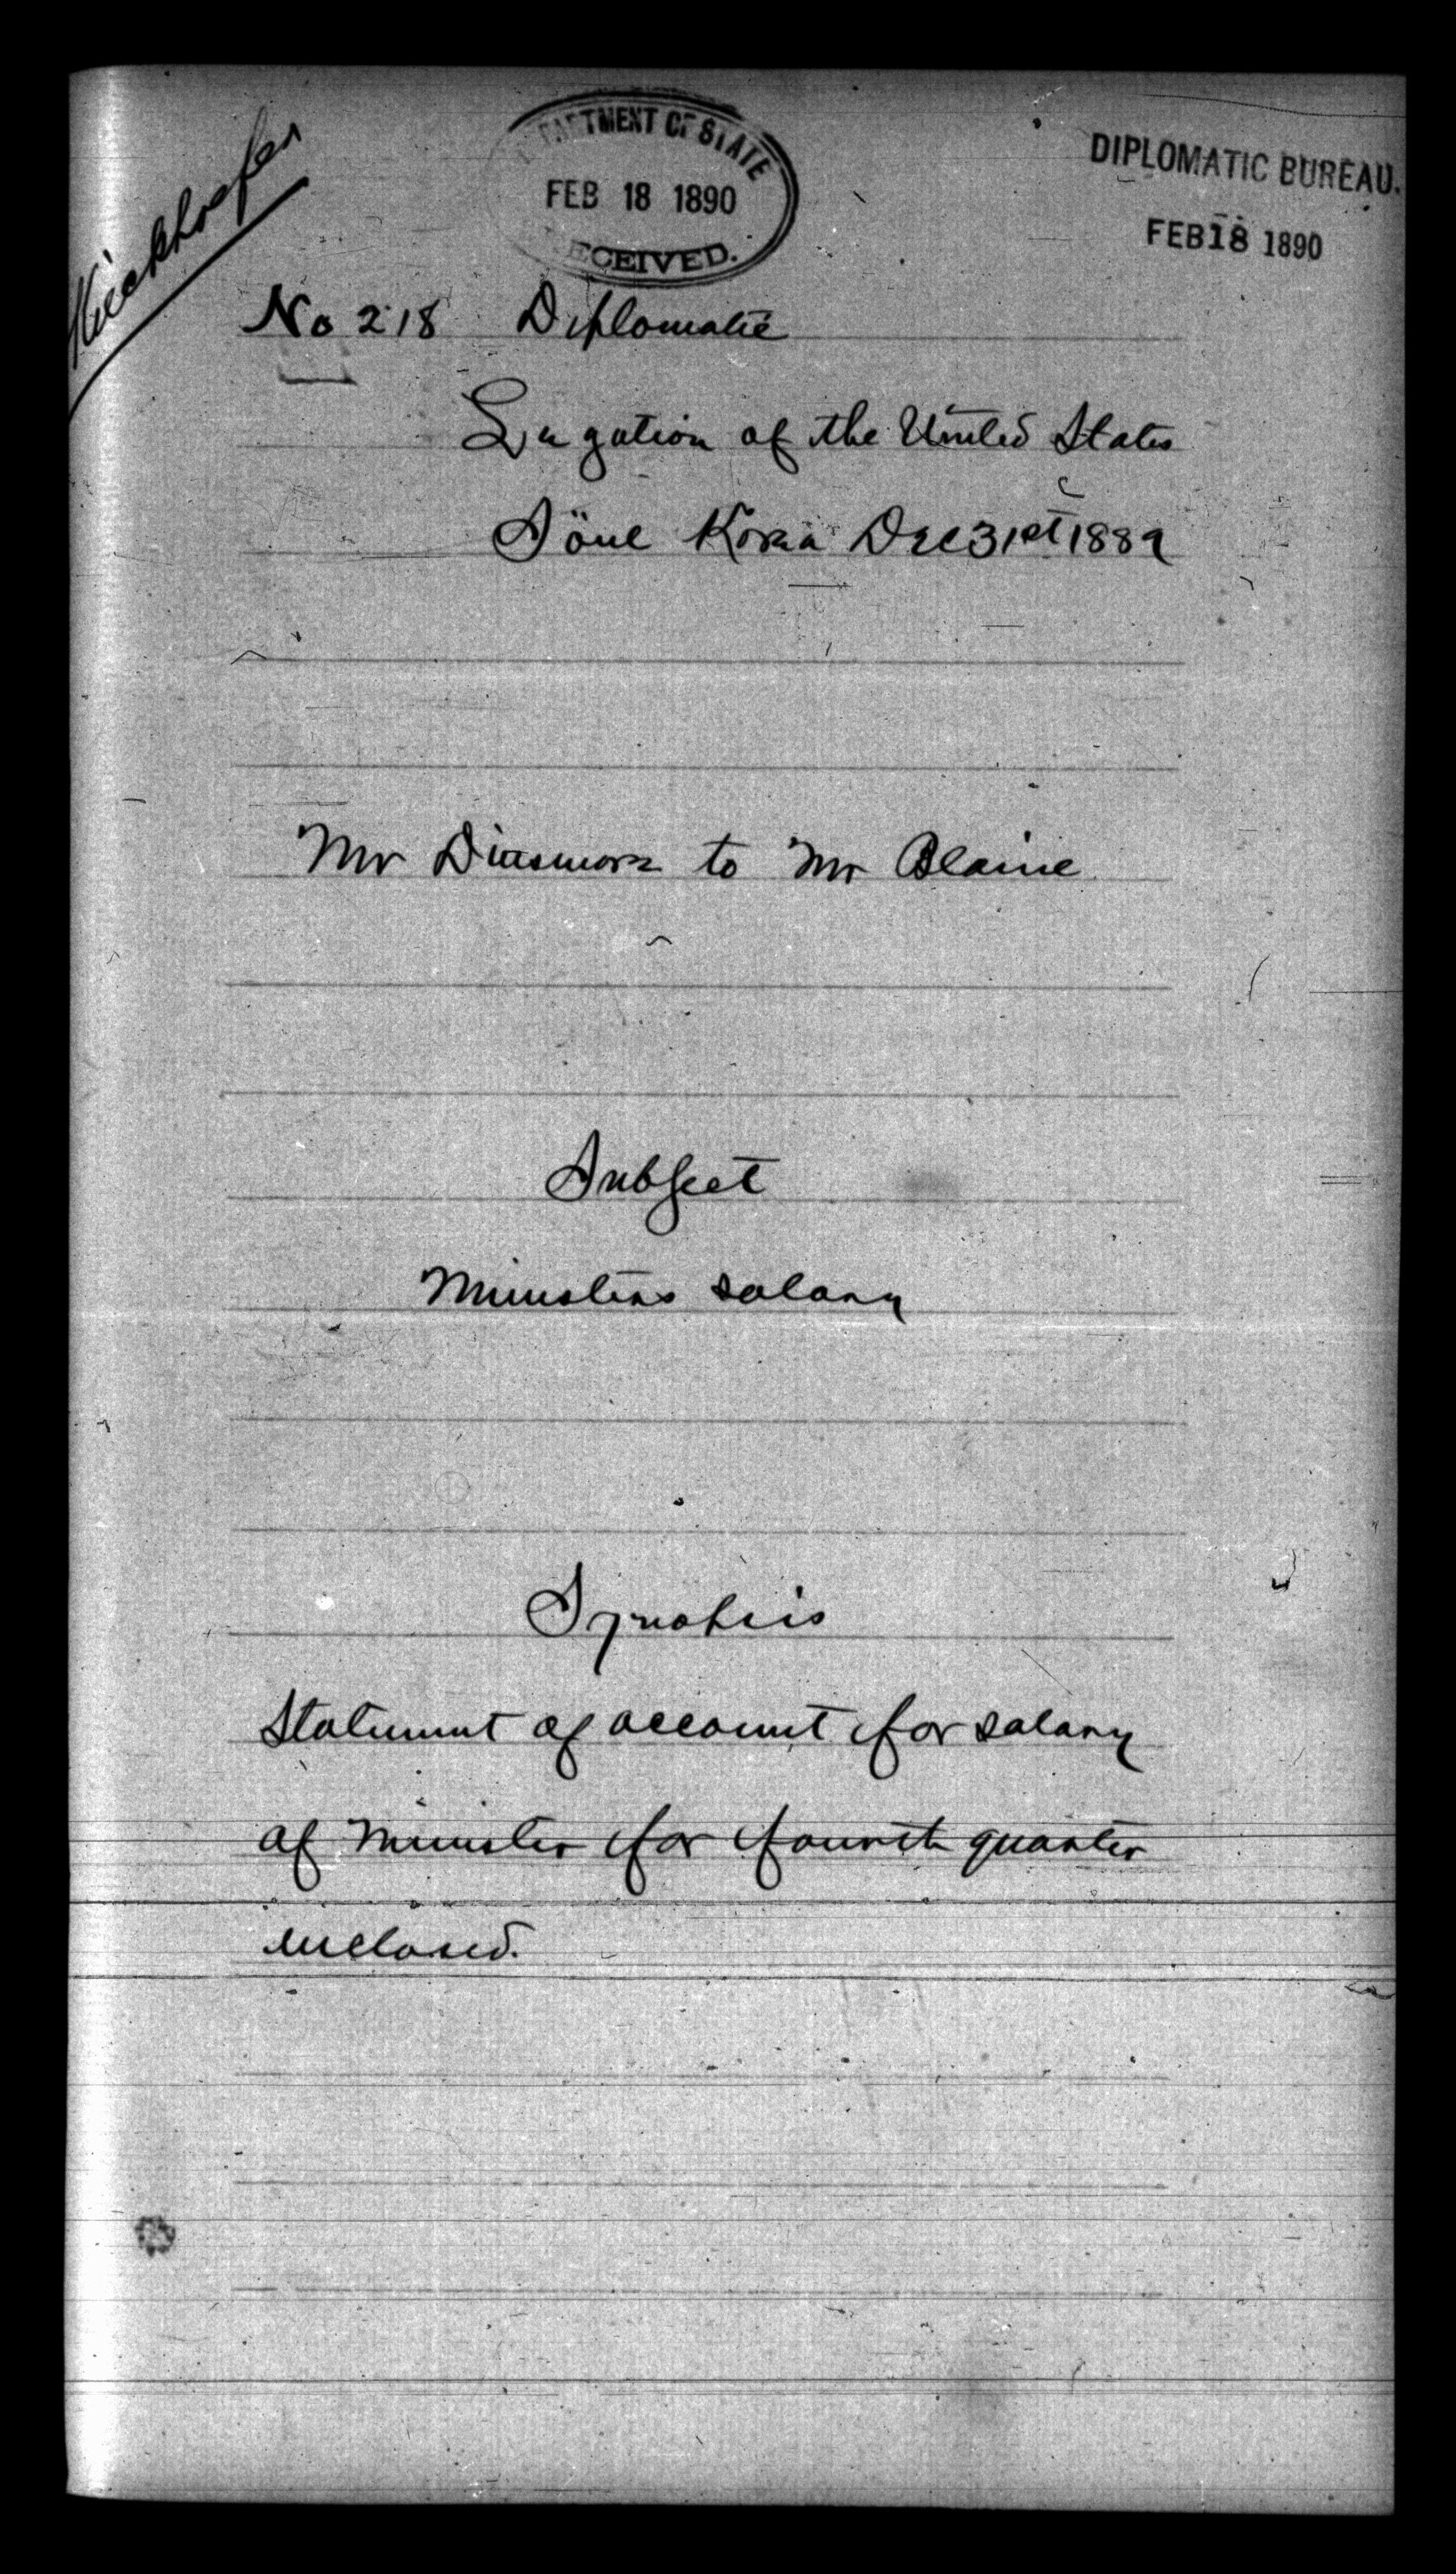 Kieckhoefer
DEPARTMENT OF STATE
FEB 18 1890
RECEIVED.
DIPLOMATIC BUREAU.
FEB 18 1890
No 218 Diplomatic
Legation of the United States
Söul Korea Dec 31st 1889
Mr Dinsmore to Mr Blaine
Subject
Ministers salary
Synopsis
Statement of account for salary
of Minister for fourth quarter
inclosed.